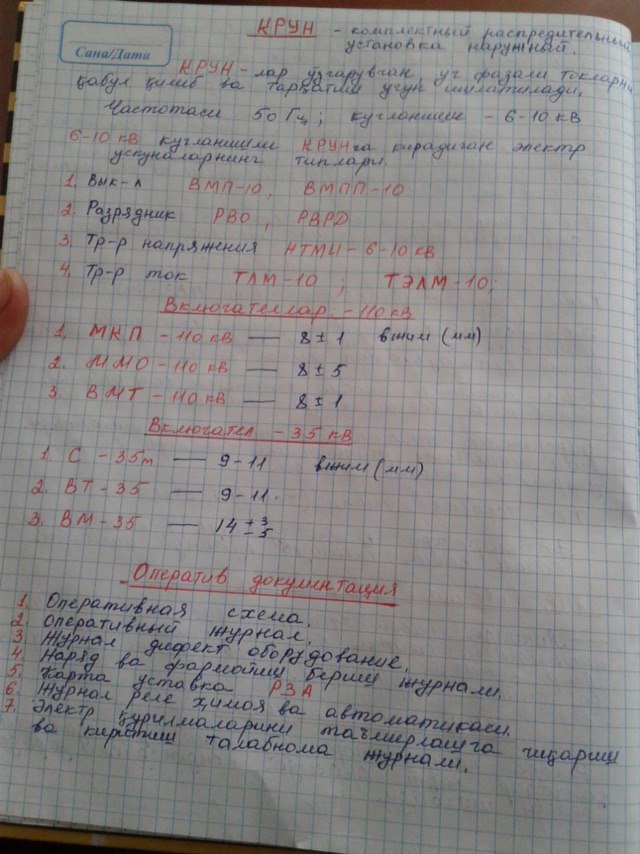 КРУН - комплектный распределительный
установка наружный.
Сана/Дата
КРУН-лар узгарувчан, уч фазали токларни
қабул қилиб ва тарқатиш учун ишлатилади.
Частотаси 50 Гц; кучланиши - 6-10 кВ
6-10 кВ кучланишли КРУНга кирадиган электр
ускуналарнинг типлари.
1. Вык-л ВМП-10, ВМПП-10
2. Разрядник РВО, РВРД
3. Тр-р напряжения НТМИ - 6-10 кВ
4. Тр-р ток ТЛМ-10; ТЭЛМ-10;
Включателлар. - 110 кВ
1. МКП - 110 кВ — 8 ± 1 вжим (мм)
2. ММО - 110 кВ — 8 ± 5
3. ВМТ - 110 кВ — 8 ± 1
Включател - 35 кВ
1. С - 35т — 9-11 вжим (мм)
2. ВТ - 35 — 9-11.
3. ВМ - 35 — 14 +3 -5
Оператив документация
1. Оперативная схема.
2. Оперативный журнал.
3. Журнал дифект оборудование.
4. Наряд ва фармойиш бериш журнали.
5. Карта уставка РЗА
6. Журнал реле ҳимоя ва автоматикаси.
7. Электр қурилмаларини таъмирлашга чиқариш
ва киритиш талабнома журнали.